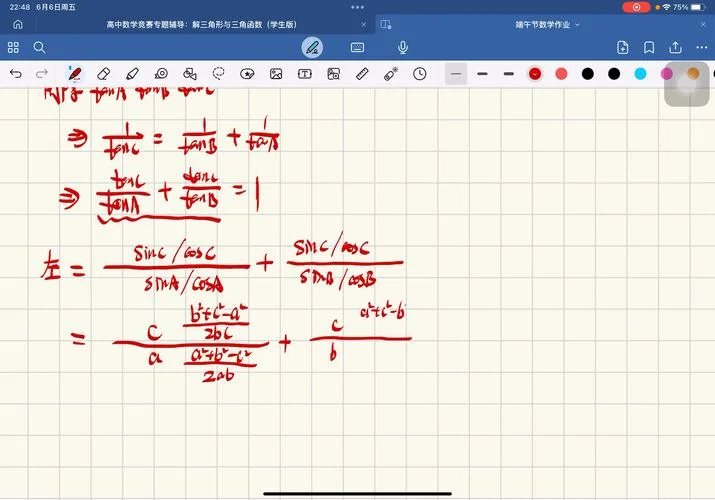 22:48 6月6日周五
75%
高中数学竞赛专题辅导：解三角形与三角函数（学生版）
端午节数学作业
tanA tanB tanC
⇒ 1/tanC = 1/tanB + 1/tanA
⇒ tanC/tanA + tanC/tanB = 1
左 = (sinC/cosC)/(sinA/cosA) + (sinC/cosC)/(sinB/cosB)
= (c (b²+c²-a²)/2bc)/(a (a²+b²-c²)/2ab) + (c a²+c²-b²)/b